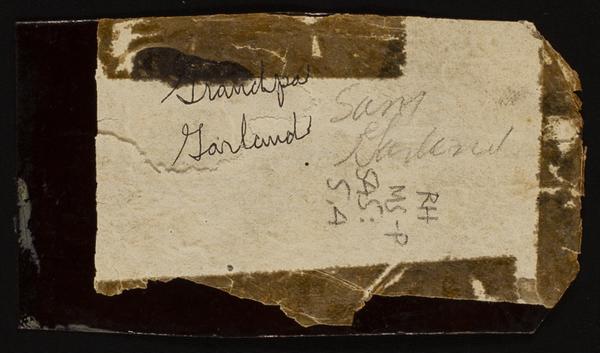 Grandpa
Garland
Sam
Garland
RH
MS-P
SAS:
5.4